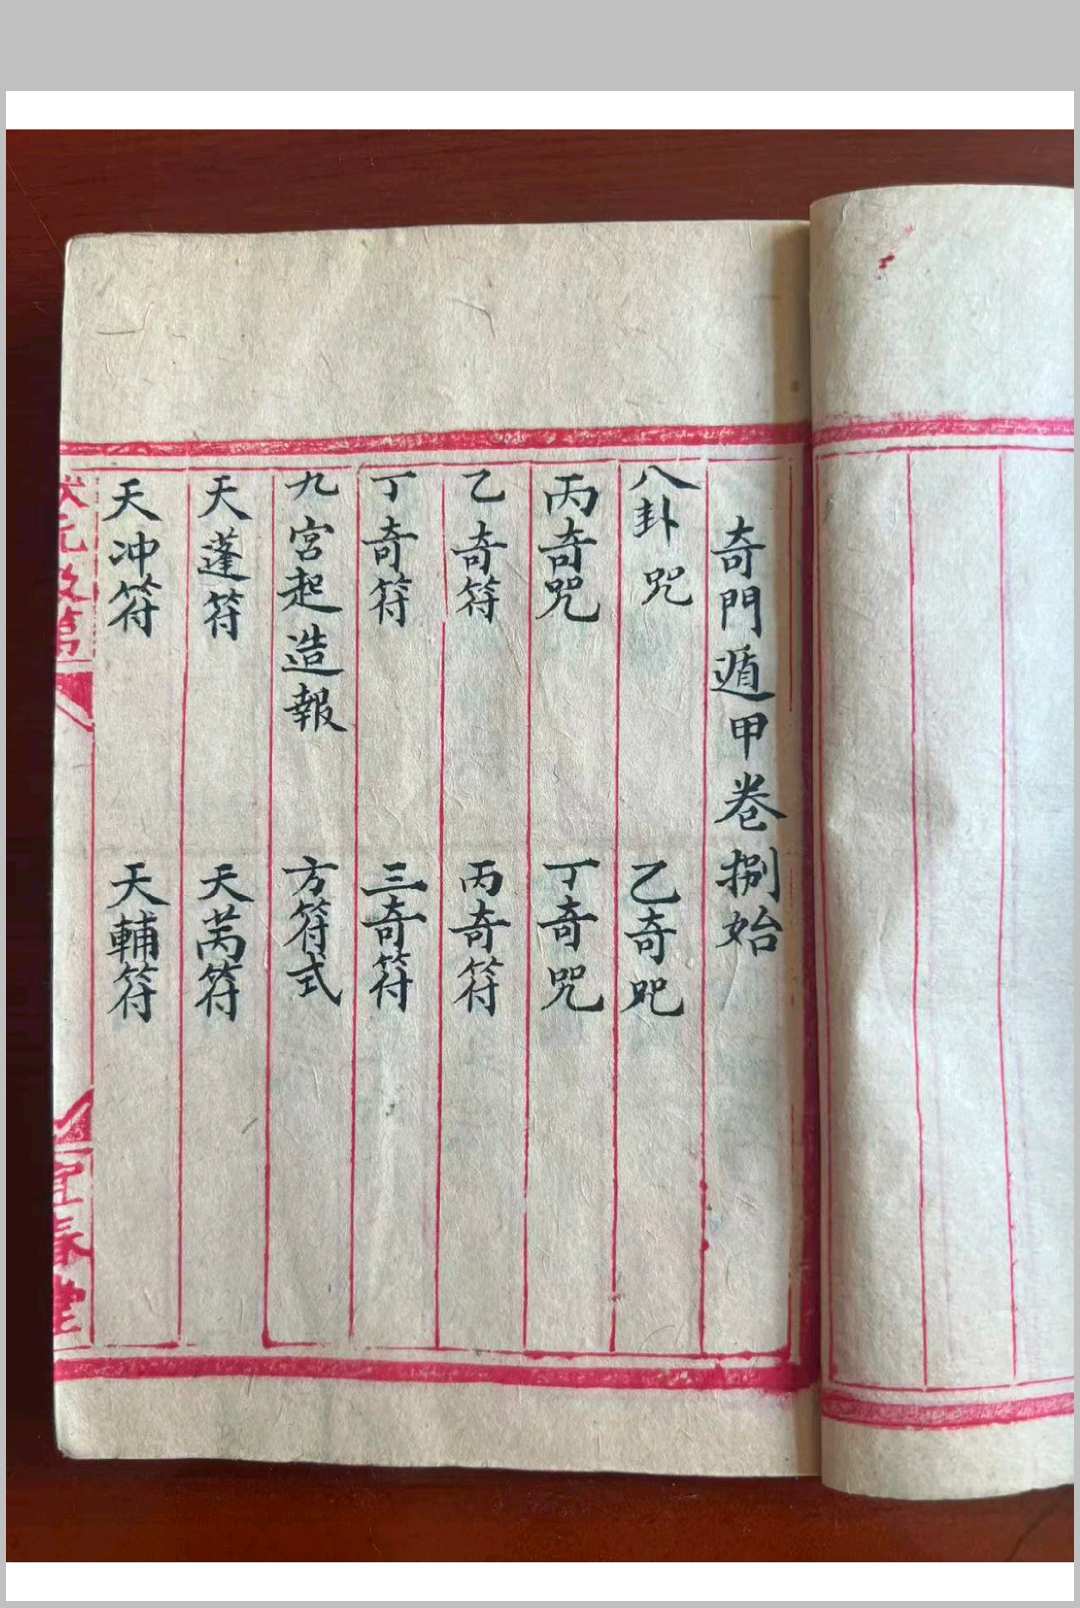 奇門遁甲卷捌始
八卦咒 乙奇咒
丙奇咒 丁奇咒
乙奇符 丙奇符
丁奇符 三奇符
九宮起造報 方符式
天蓬符 天芮符
天冲符 天輔符
状元及第
宜春堂